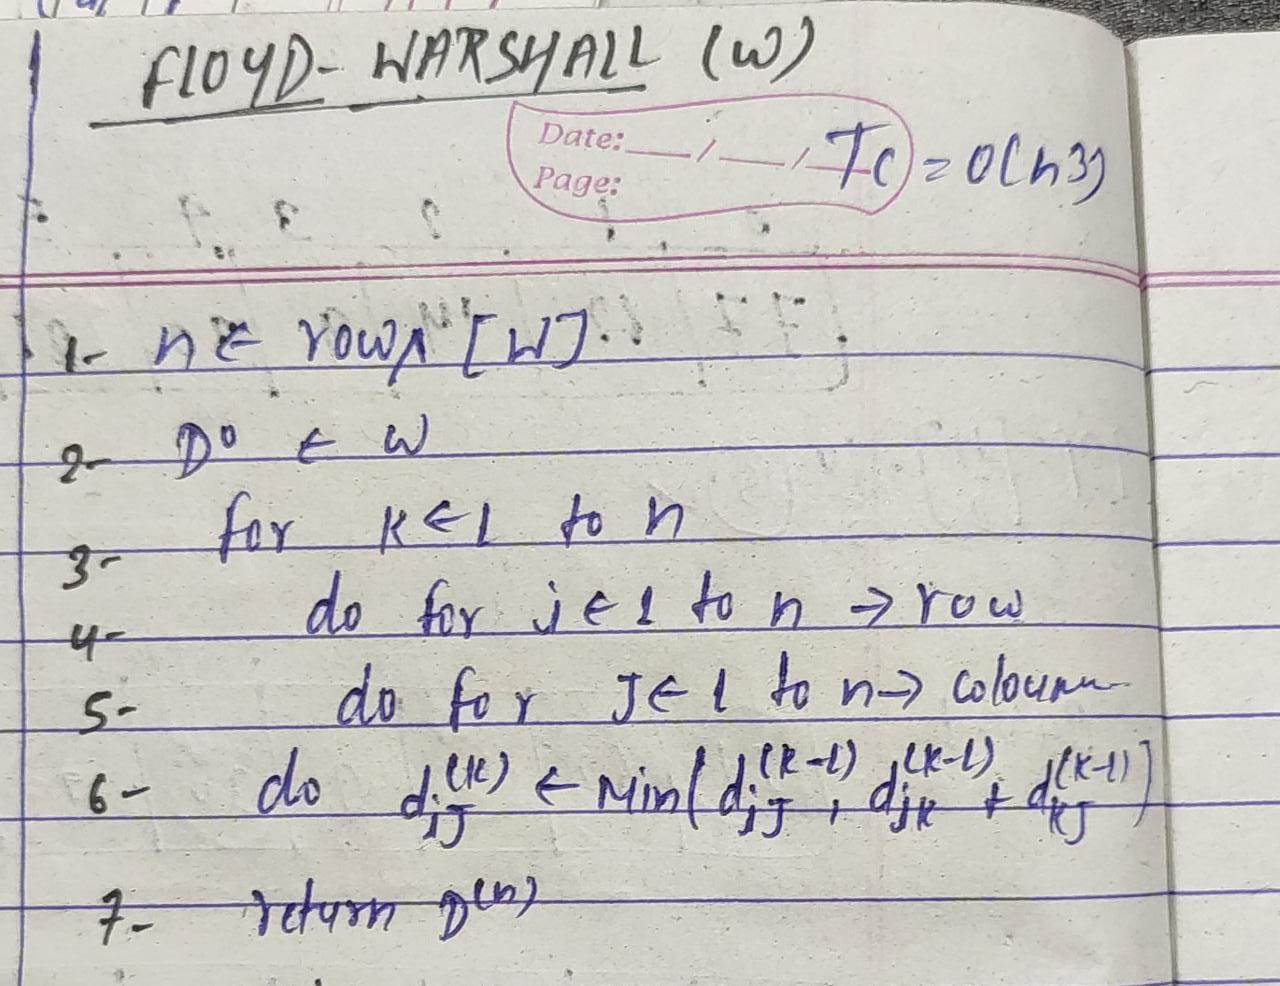 FLOYD- WARSHALL (W)
Date: __/__/__ TC = O(n3)
Page:
1- n ← rows [W].
2- D⁰ ← W
3- for K ← 1 to n
4- do for i ← 1 to n → row
5- do for J ← 1 to n → coloumn
6- do d_iJ^(K) ← Min(d_iJ^(K-1), d_iK^(K-1) + d_KJ^(K-1)]
7- return D^(n)